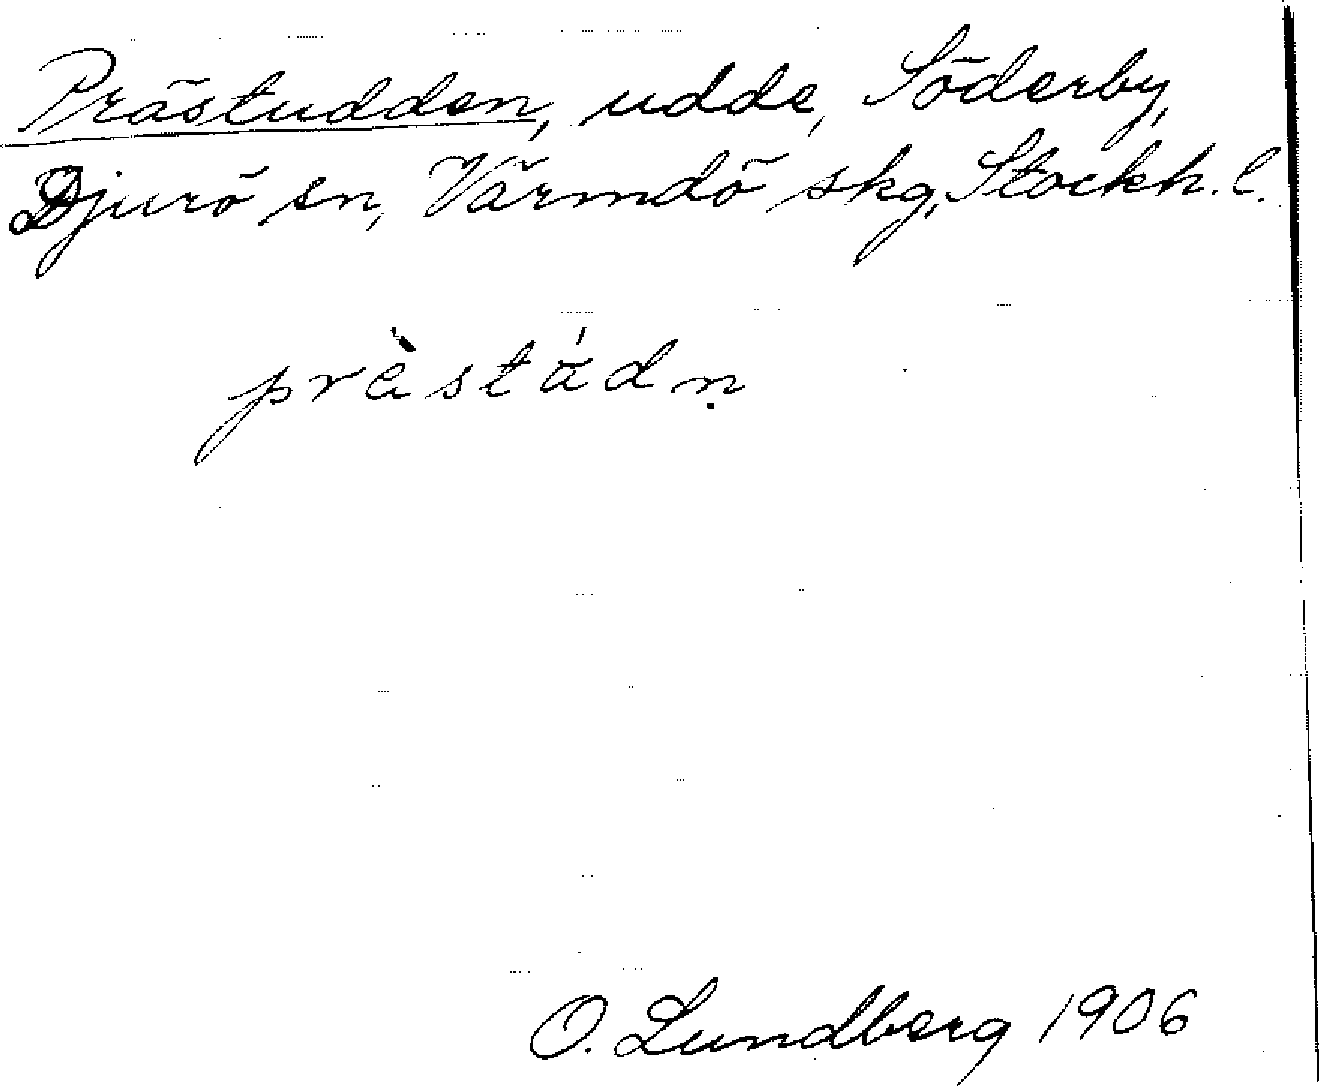 Prästudden, udde, Söderby,
Djurö sn, Värmdö skg, Stockh. l.
prѐstádṇ
O. Lundberg 1906